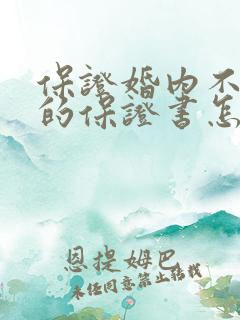 保證婚内不
的保證書怎
恩提姆巴
未任同意禁止轉載